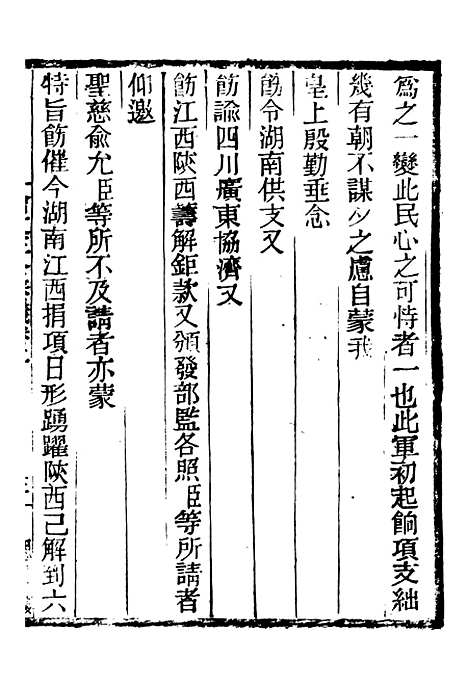 為之一變此民心之可恃者一也此軍初起餉項支絀
幾有朝不謀夕之慮自蒙我
皇上殷勤垂念
飭令湖南供支又
飭諭四川廣東協濟又
飭江西陝西籌解鉅款又頒發部監各照臣等所請者
仰邀
聖慈俞允臣等所不及請者亦蒙
特旨飭催今湖南江西捐項日形踴躍陝西已解到六